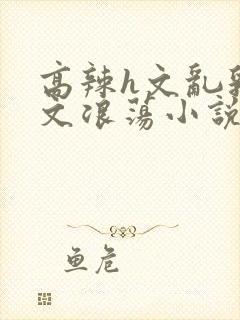 高辣h文亂
文浪蕩小說
鱼危